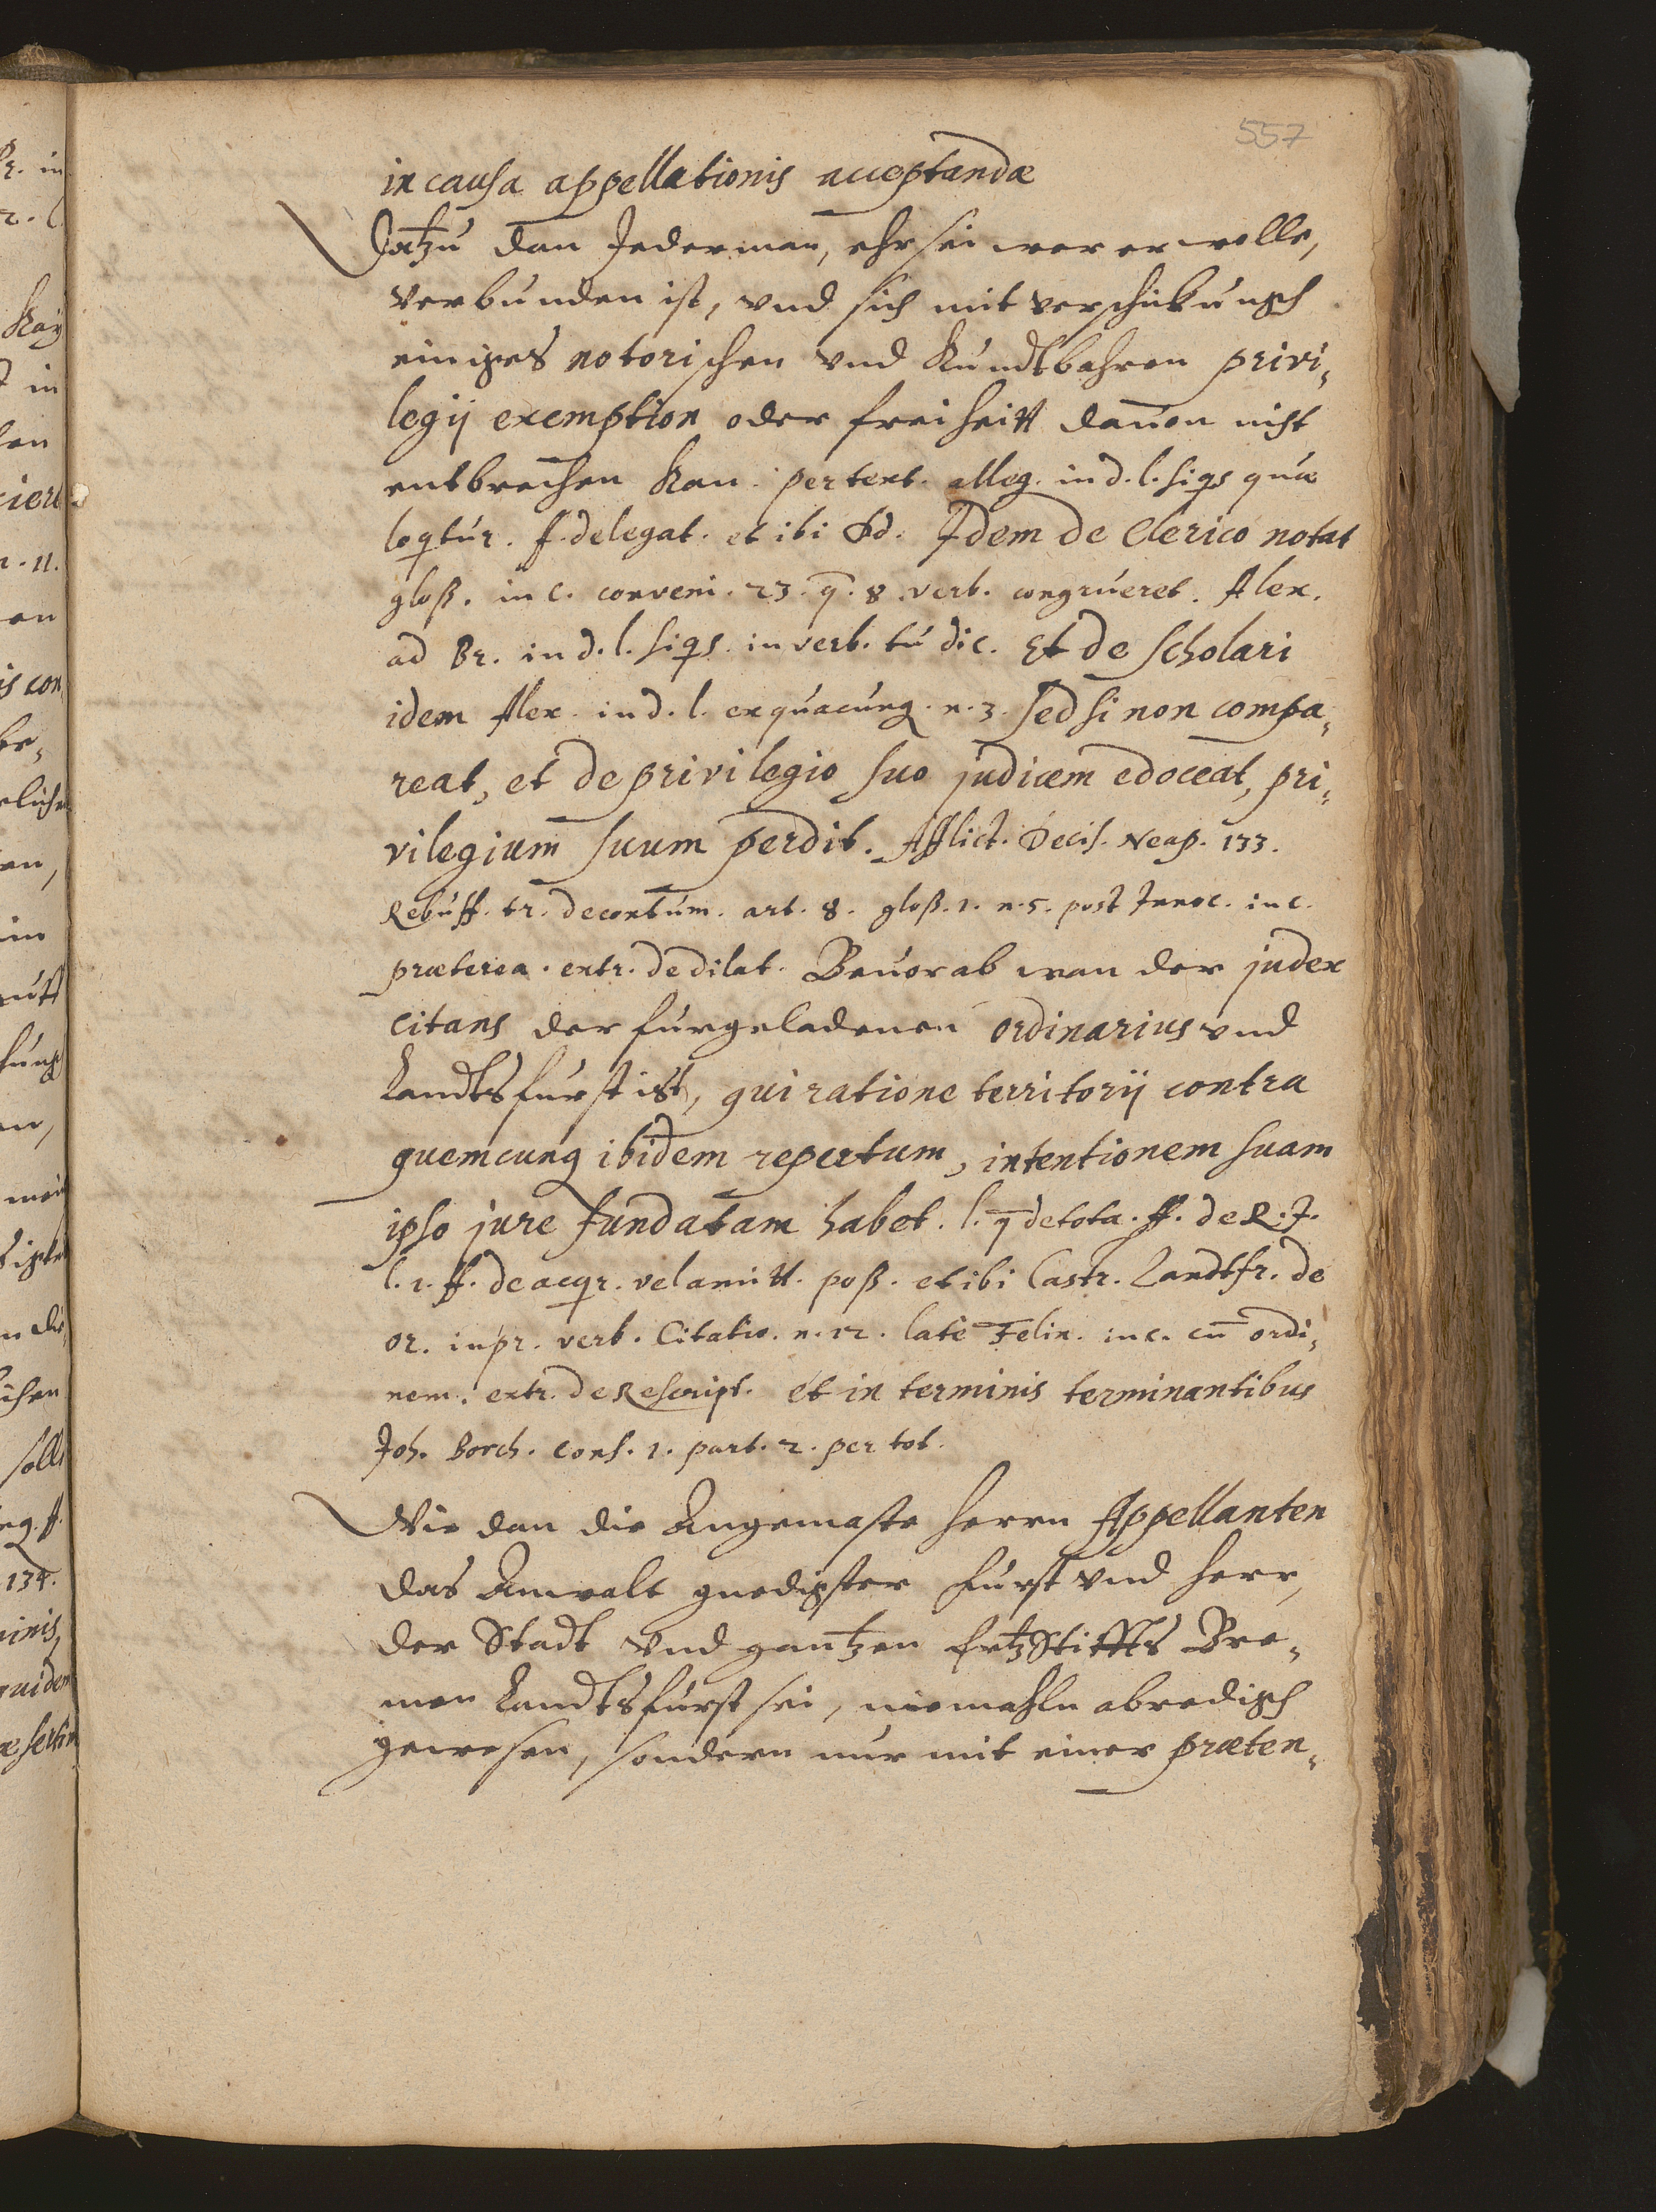 557
in causa appellationis acceptandæ
Datzu dan Jederman, ehr sei wer er wolle,
verbunden ist, vnd sich mit verschickungh
einiges notorischen vnd Kundtbahren privi,
legij exemption oder freiheitt dauon nicht
entbrechen kan. per text. alleg. in d. l. siqs quæ
loqtur. ff. delegat. et ibi Dd. Idem de Clerico notat
gloß. in c. conveni. 23. q. 8. verb. congrueret. Alex.
ad Br. in d. l. siqs. in verb. tu dic. Et de scholari
idem Alex. in d. l. ex quacunq. n. 3. sed si non compa,
reat, et de privilegio suo judicem edoceat, pri,
vilegium suum perdit. Afflict. Decis. Neap. 133.
Rebuff. tr. de contum. art. 8. gloß. 1. n. 5. post Innoc. in c.
præterea. extr. de dilat. Beuorab wan der judex
citans der furgeladenen ordinarius vnd
Landtsfurst ist, qui ratione territorij contra
quemcunq ibidem repertum, intentionem suam
ipso jure fundatam habet. l. q de tota. ff. de R. J.
l. 1. ff. de acqr. vel amitt. poß. et ibi Castr. Landtfr. de
or. in pr. verb. Citatio. n. 12. latè Felin. in c. cū ordi,
nem. extr. de Rescript. et in terminis terminantibus
Joh. Borch. cons. 1. part. 2. per tot.
Wie dan die Angemaste herrn Appellanten
das Anwalt gnedigster Furst vnd herr,
der Stadt vnd gantzen ErtzStiffts Bre,
men Landtsfurst sei, niemahln abredigh
gewesen, sondern nur mit einer præten,